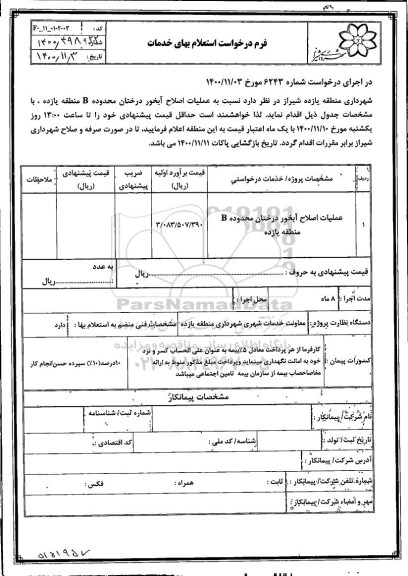 کد : F-۰_۱۱_۰۱۰۲-۰۰۲
فرم درخواست استعلام بهای خدمات
شماره : ۱۴۰۰/۳۹۸
تاریخ : ۱۴۰۰/۱۱/۳
در اجرای درخواست شماره ۶۲۴۳ مورخ ۱۴۰۰/۱۱/۰۳
شهرداری منطقه یازده شیراز در نظر دارد نسبت به عملیات اصلاح آبخور درختان محدوده B منطقه یازده ، با
مشخصات جدول ذیل اقدام نماید. لذا خواهشمند است حداقل قیمت پیشنهادی خود را تا ساعت ۱۳:۰۰ روز
یکشنبه مورخ ۱۴۰۰/۱۱/۱۰ با یک ماه اعتبار قیمت به این منطقه اعلام فرمایید، تا در صورت صرفه و صلاح شهرداری
شیراز برابر مقررات اقدام گردد. تاریخ بازگشایی پاکات ۱۴۰۰/۱۱/۱۱ می باشد.
ردیف مشخصات پروژه/ خدمات درخواستی قیمت برآورد اولیه (ریال) ضریب پیشنهادی قیمت پیشنهادی (ریال) ملاحظات
۱ عملیات اصلاح آبخور درختان محدوده B منطقه یازده ۳/۰۸۳/۵۰۷/۳۹۰
قیمت پیشنهادی به حروف : ................ ریال به عدد : ................ ریال
مدت اجرا : ۸ ماه محل اجرا :
دستگاه نظارت پروژه : معاونت خدمات شهری شهرداری منطقه یازده مشخصات فنی منضم به استعلام بها : دارد
کسورات پیمان : کارفرما از هر پرداخت معادل ۵٪ بیمه به عنوان علی الحساب کسر و نزد
خود به امانت نگهداری مینماید وپرداخت مبلغ مذکور منوط به ارائه
مفاصاحساب بیمه از سازمان بیمه تامین اجتماعی میباشد
۱۰درصد(۱۰٪) سپرده حسن انجام کار
مشخصات پیمانکار
نام شرکت/ پیمانکار : شماره ثبت/ شناسنامه :
تاریخ ثبت/ تولد : شناسه/ کد ملی : کد اقتصادی :
آدرس شرکت/ پیمانکار :
شماره تلفن شرکت/ پیمانکار : ثابت : همراه : فکس :
مهر و امضاء شرکت/ پیمانکار :
ParsNamadData